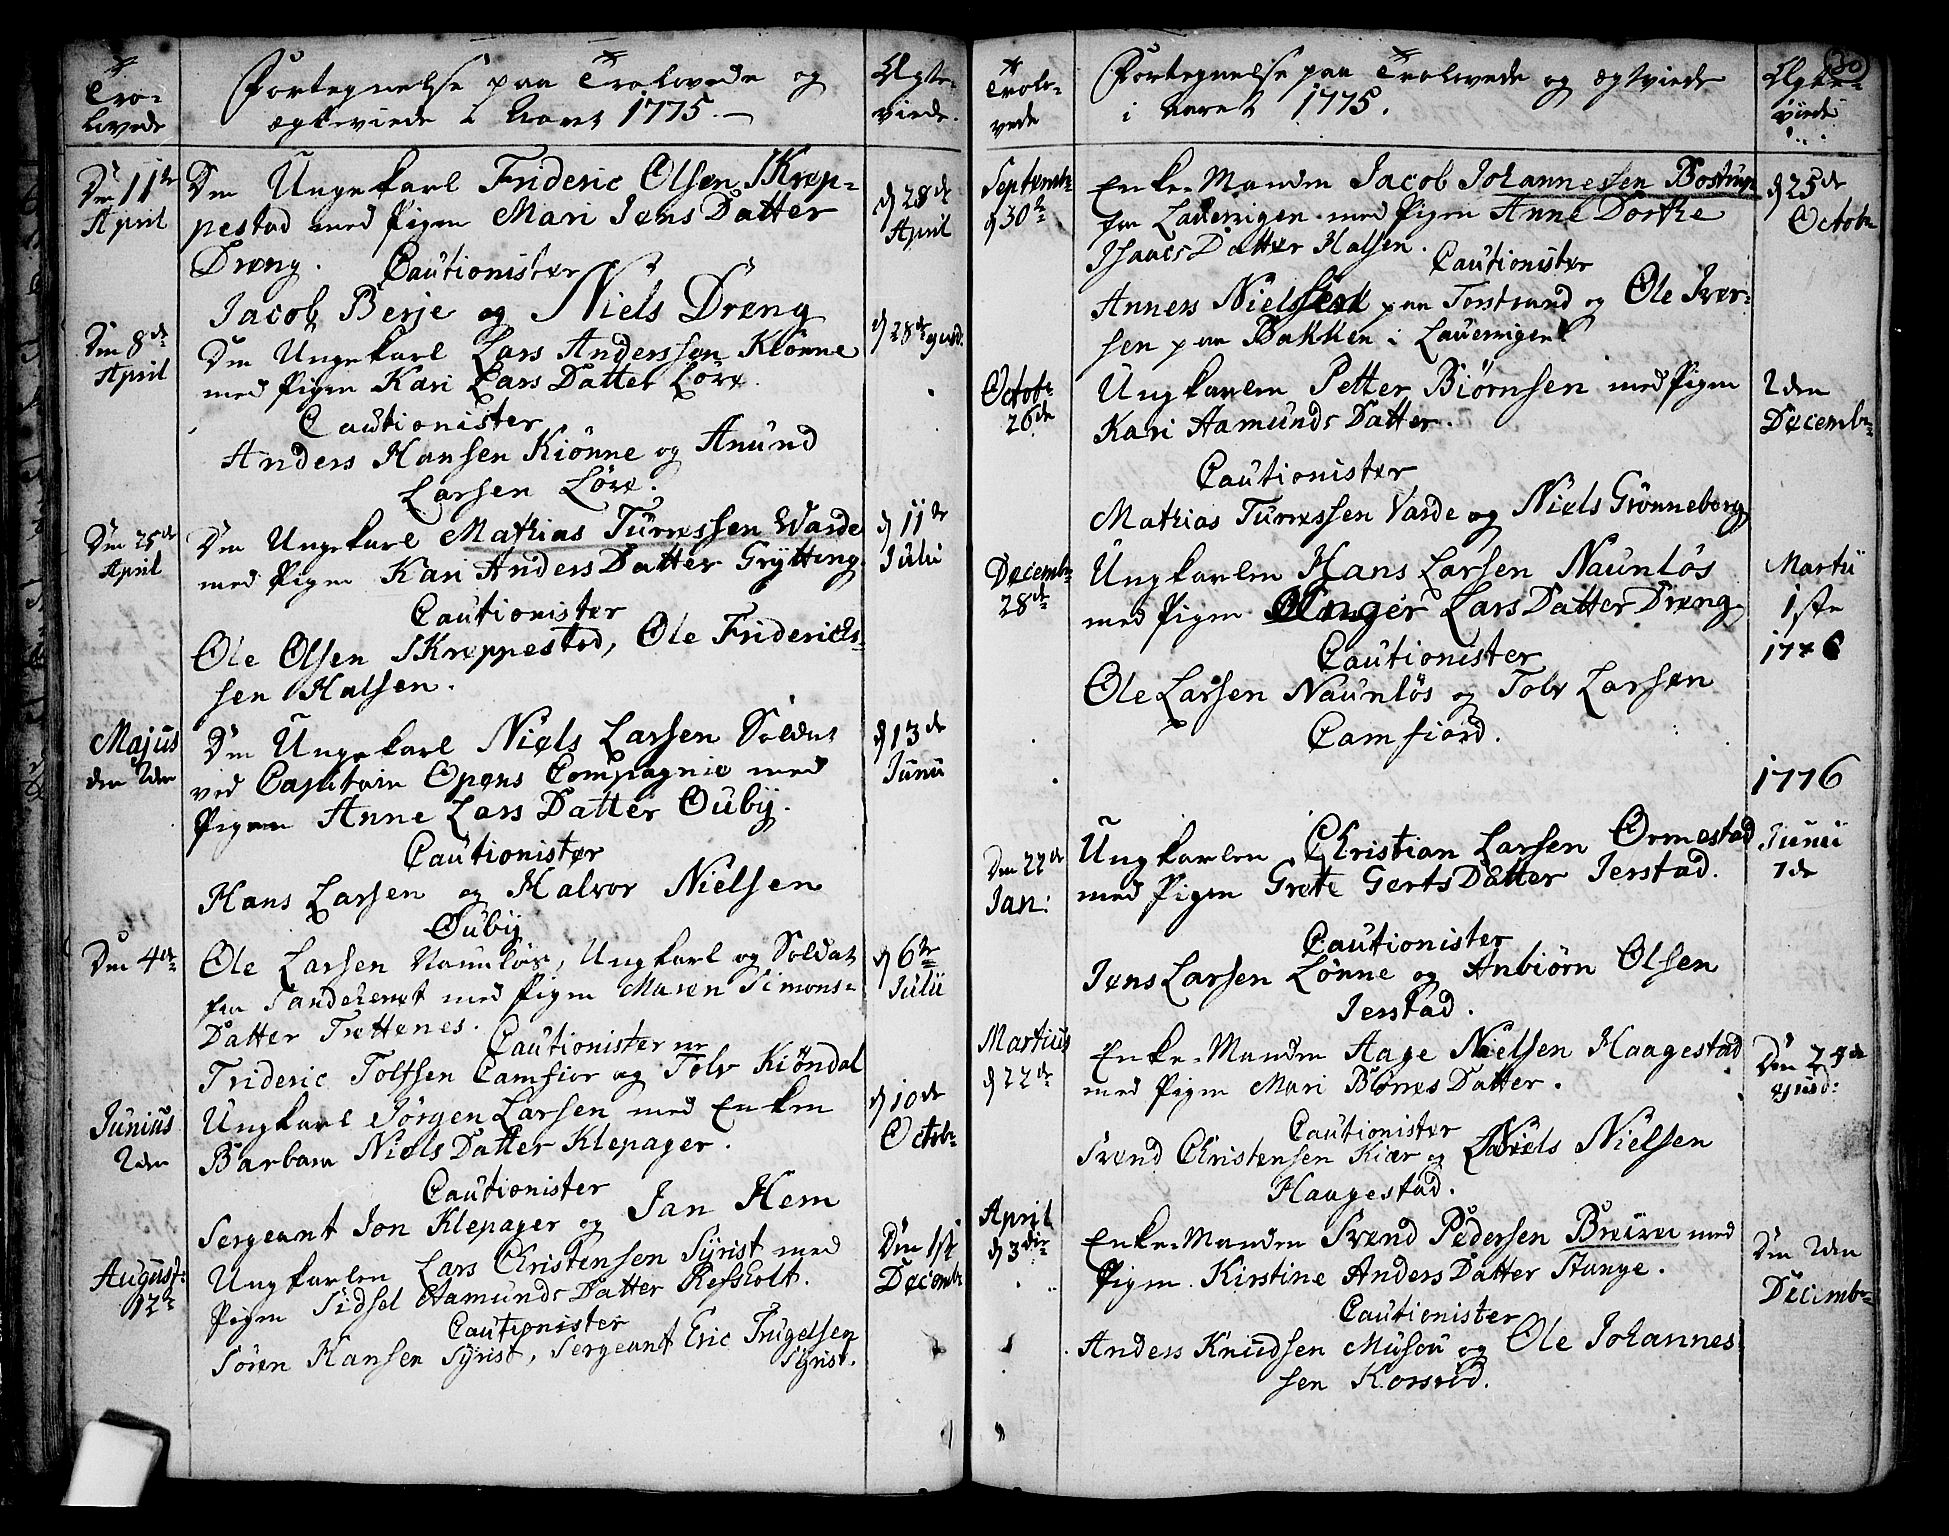 Tro-
lovede
Fortegnelse paa Trolovede og
ægteviede i Aaret 1775.
Ægte-
viede.
Den 11te
April
Den Ungekarl Frideric Olsen Skrep-
pestad med Pigen Mari Jens Datter
Dreng. Cautionister
Jacob Berje og Niels Dreng
d 28de
April
Den 8de
April
Den Ungekarl Lars Anderssen Klönne
med Pigen Kari Lars Datter Löve.
Cautionister
Anders Hansen Kiönne og Anund
Larsen Löve.
d 28de ejusd.
Den 25de
April
Den Ungekarl Mathias Turressen Warde
med Pigen Kari Anders Datter Grÿtting
Cautionister
Ole Olsen Skreppestad, Ole Friderichs-
sen Halsen.
d 11te
Julii
Majus
den 2den
Den Ungekarl Niels Larsen Soldat
ved Capitain Opens Compagnie med
Pigen Anne Lars Datter Oubÿ.
Cautionister
Hans Larsen og Halvor Nielsen
Oubÿ
d 13de
Junii
Den 4de
Ole Larsen Naunløs, Ungkarl og Soldat
fra Sandeherret med Pigen Maren Simons-
Datter Trettenes. Cautionister
Frideric Tolfsen Camfior og Tolv Kiöndal
d 6te
Julii
Junius
2den
Ungkarl Jörgen Larsen med Enken
Barbara Niels Datter Klepager.
Cautionister
Sergeant Jon Klepager og Jan Hem
d 10de
Octob:
August:
12te
Ungkarlen Lars Christensen Sÿrist med
Pigen Sidsel Aamunds Datter Refsholt.
Cautionister
Sören Hansen Sÿrist, Sergeant Eric Trugelsen
Sÿrist.
Den 1ste
Decembr
Trolo-
vede
Fortegnelse paa Trolovede og ægteviede
i Aaret 1775.
Ægte-
viede
80
Septembr
d 30te
Enke-Manden Jacob Johannessen Bostrup
fra Lauerrigen med Pigen Anne Dorthe
Isaacs Datter Halsen.
Cautionister
Anners Nielssen paa Torstrand og Ole Iver-
sen paa Bakken i Lauerrigen
d 25de
Octob:
Octob:
26de
Ungkarlen Petter Biörnsen med Pigen
Kari Aamunds Datter.
Cautionister
Mathias Turressen Varde og Niels Grönneberg
2den
Decembr
Decembr
28de
Ungkarlen Hans Larsen Naunlös
med Pigen Anger Lars Datter Dreng
Cautionister
Ole Larsen Naunlös og Tolv Larsen
Camfiord.
Martii
1ste
1776
1776
Den 22de
Jan:
Ungkarlen Christian Larsen Ormestad
med Pigen Grete Gerts Datter Jerstad.
Cautionister
Jens Larsen Lönne og Anbiörn Olsen
Jerstad.
Junii
7de
Martius
d 22de
Enke-Manden Aage Nielsen Haagestad
med Pigen Mari Börres Datter.
Cautionister
Svend Christensen Kiær og Niels Nielsen
Haagestad.
Den 28de
ejusd:
April
d 3die
Enke-Manden Svend Pedersen Breiva med
Pigen Kirstine Anders Datter Stange.
Cautionister
Anders Knudsen Musou og Ole Johannes
sen Korsvid.
Den 2den
Decembr